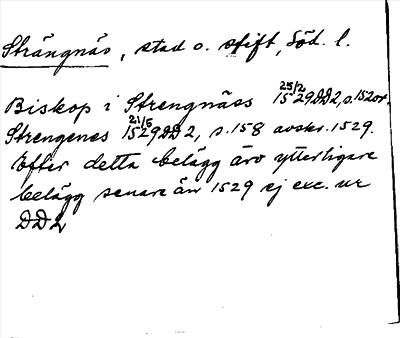 Strängnäs, stad o. stift, Söd. l.
Biskop i Strengnäss 25/2 1529 DD2, s. 152 or.
Strengenes 21/5 1529 DD2, s. 158 avskr. 1529.
Efter detta belägg äro ytterligare
belägg senare än 1529 ej exc. ur
DD2